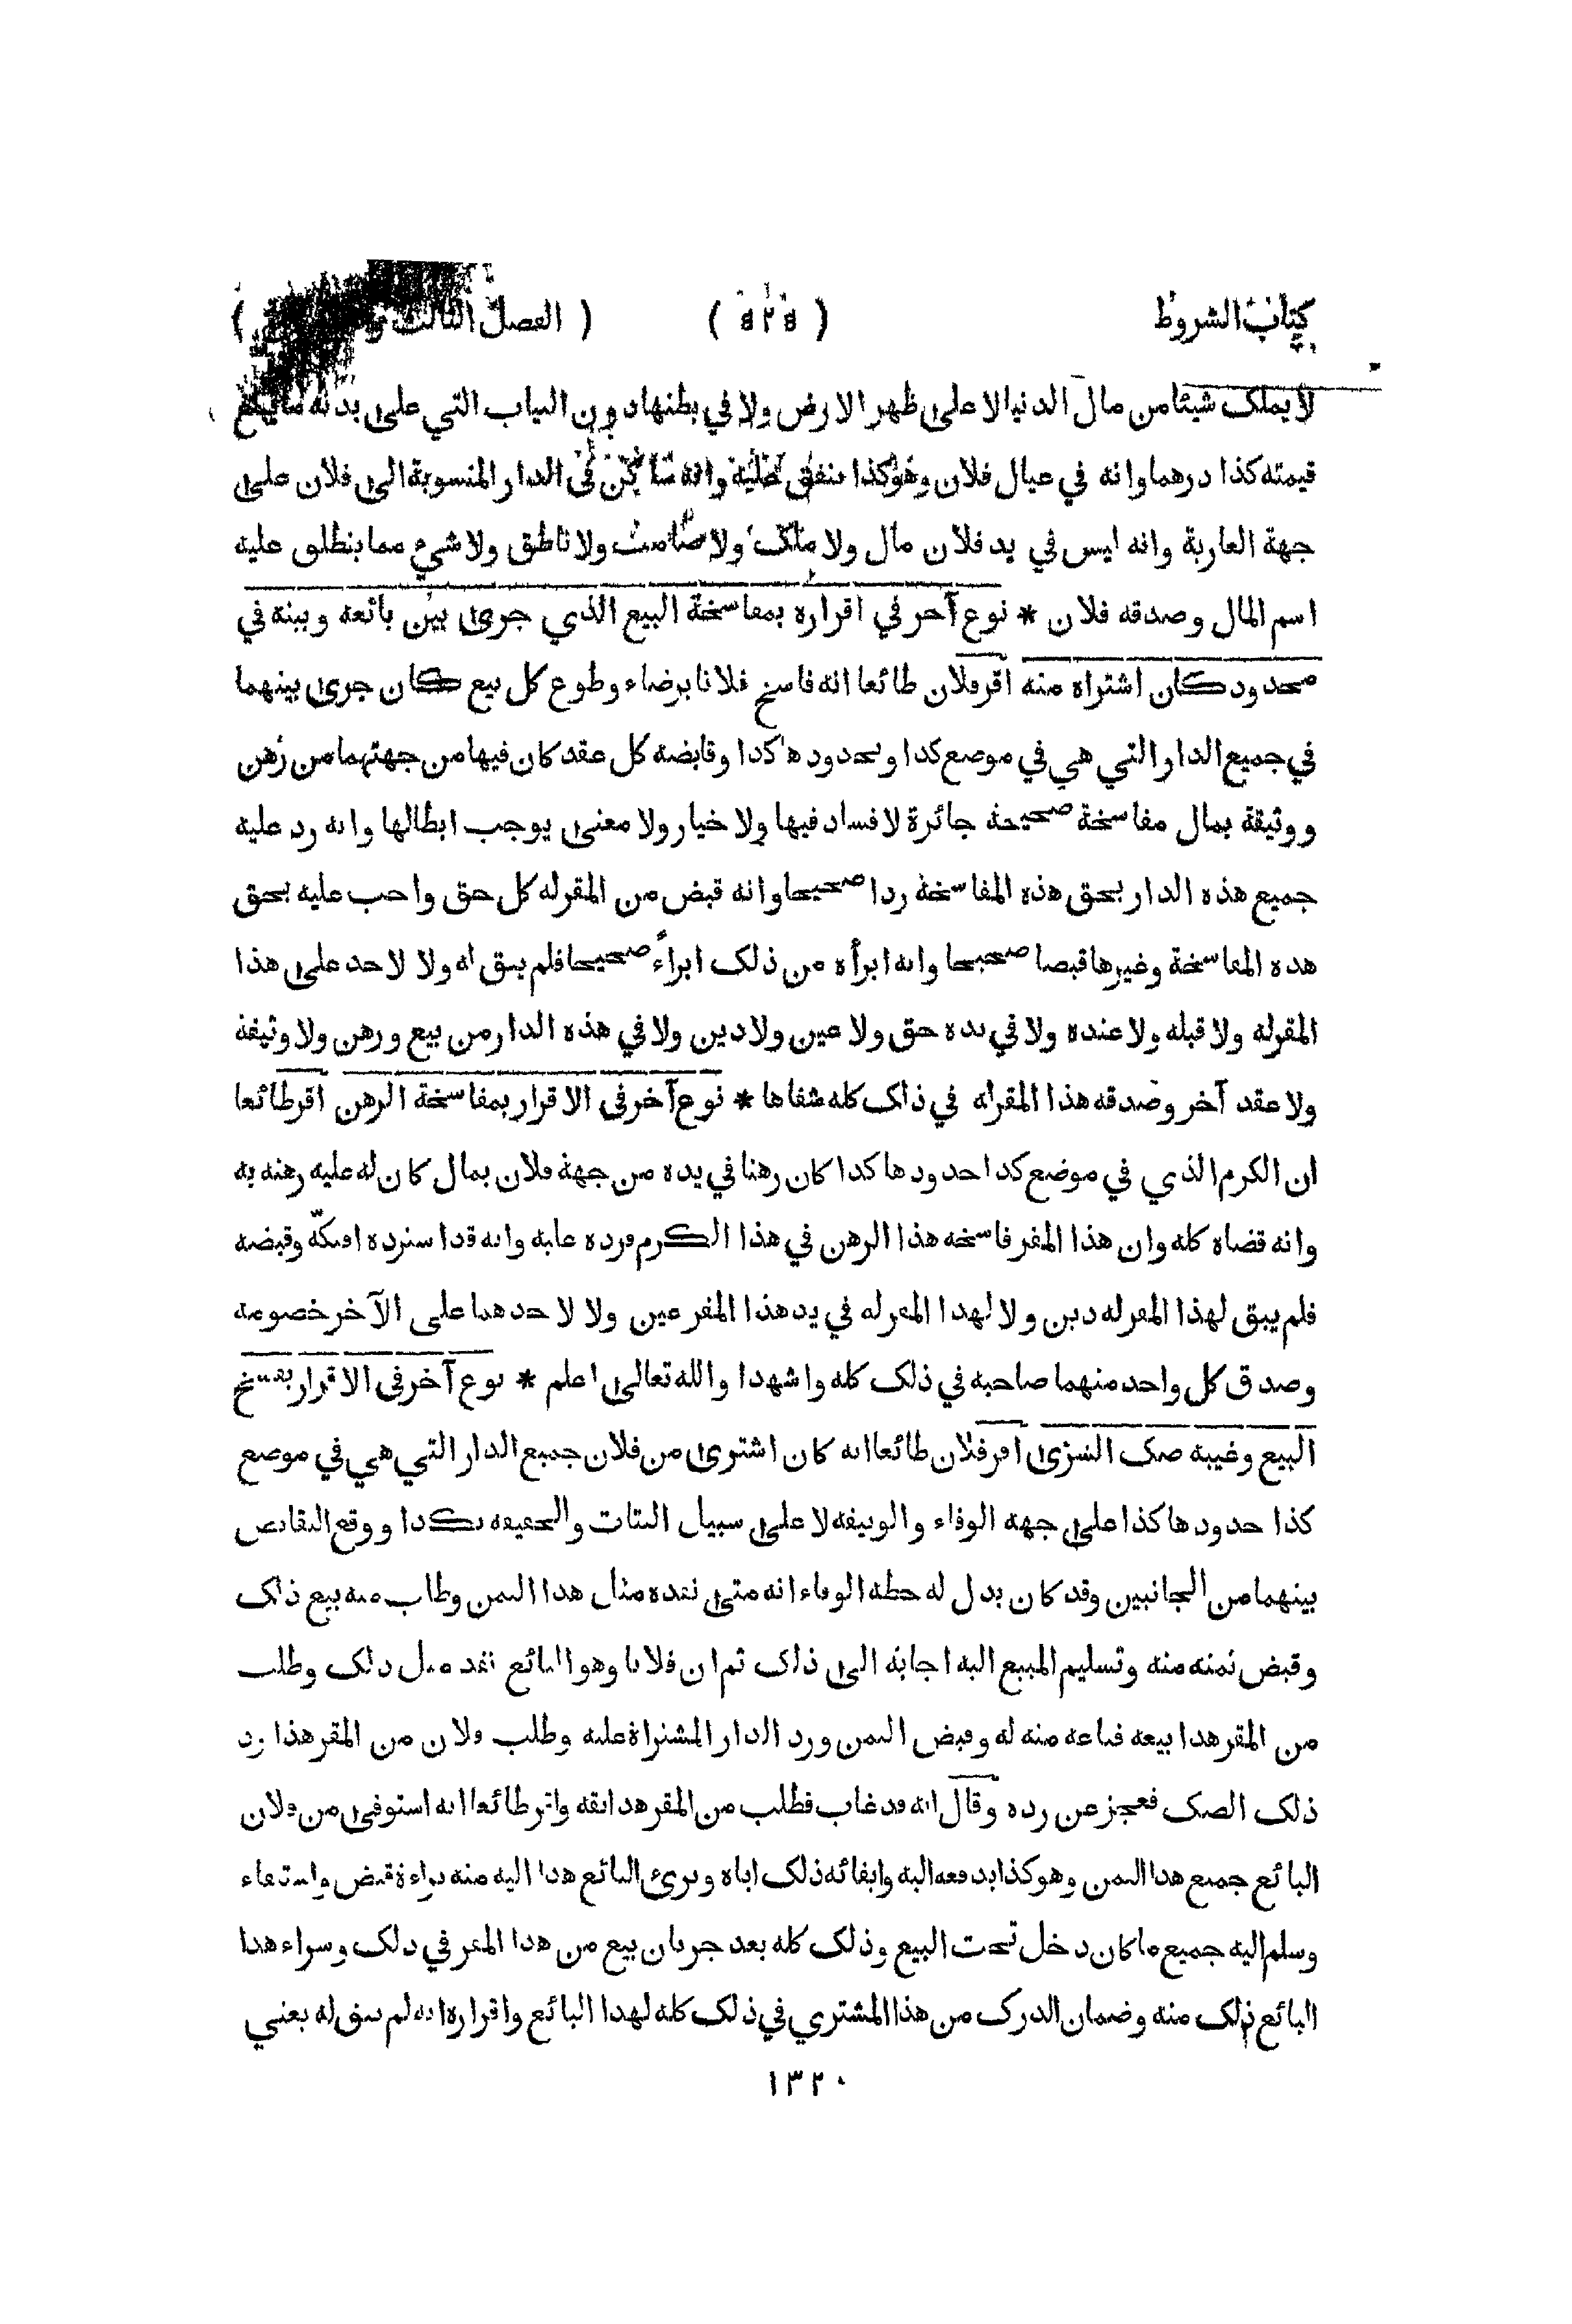 كتاب الشروط ( ٥٢٥ ) ( الفصل الثالث )
لا يملك شيئا من مال الدنيا لا على ظهر الارض ولا في بطنها دون الثياب التي على بدنه مما
قيمته كذا درهما وانه في عيال فلان وهو كذا ينفق عليه وانه ساكن في الدار المنسوبة الى فلان على
جهة العارية وانه ليس في يد فلان مال ولا ملك ولا صامت ولا ناطق ولا شيء مما ينطلق عليه
اسم المال وصدقه فلان * نوع آخر في اقراره بمفاسخة البيع الذي جرى بين بائعه وبينه في
محدود كان اشتراه منه اقر فلان طائعا انه فاسخ فلانا برضاء وطوع كل بيع كان جرى بينهما
في جميع الدار التي هي في موضع كذا وبحدودها كذا وقابضه كل عقد كان فيها من جهتهما من رهن
ووثيقة بمال مفاسخة صحيحة جائزة لا فساد فيها ولا خيار ولا معنى يوجب ابطالها وانه رد عليه
جميع هذه الدار بحق هذه المفاسخة ردا صحيحا وانه قبض من المقر له كل حق واجب عليه بحق
هذه المفاسخة وغيرها قبضا صحيحا وانه ابرأه من ذلك ابراء صحيحا فلم يبق له ولا لاحد على هذا
المقر له ولا قبله ولا عنده ولا في يده حق ولا عين ولا دين ولا في هذه الدار من بيع ورهن ولا وثيقة
ولا عقد آخر وصدقه هذا المقر له في ذلك كله شفاها * نوع آخر في الاقرار بمفاسخة الرهن اقر طائعا
ان الكرم الذي في موضع كذا حدودها كذا كان رهنا في يده من جهة فلان بمال كان له عليه رهنه به
وانه قضاه كله وان هذا المقر فاسخه هذا الرهن في هذا الكرم ورده عليه وانه قد استرده وقبضه
فلم يبق لهذا المقر له دين ولا لهذا المقر له في يد هذا المقر عين ولا لاحدهما على الآخر خصومة
وصدق كل واحد منهما صاحبه في ذلك كله واشهدا والله تعالى اعلم * نوع آخر في الاقرار بفسخ
البيع وغيبه صك الشرى اقر فلان طائعا انه كان اشترى من فلان جميع الدار التي هي في موضع
كذا حدودها كذا على جهة الوفاء والوثيقة لا على سبيل البتات والحقيقة بكذا ووقع التقابض
بينهما من الجانبين وقد كان بدل له خطه الوفاء انه متى نقده مثل هذا الثمن وطلب منه بيع ذلك
وقبض ثمنه منه وتسليم المبيع اليه اجابه الى ذلك ثم ان فلانا وهو البائع نقد مثل ذلك وطلب
من المقر هذا بيعه فباعه منه له وقبض الثمن ورد الدار المشتراة عليه وطلب فلان من المقر هذا رد
ذلك الصك فعجز عن رده وقال انه قد غاب فطلب من المقر هذا واقر طائعا انه استوفى من فلان
البائع جميع هذا الثمن وهو كذا بدفعه اليه وايفائه ذلك اياه وبرئ البائع هذا اليه منه براءة قبض واستيفاء
وسلم اليه جميع ما كان دخل تحت البيع وذلك كله بعد جريان بيع من هذا المقر في ذلك وشراء هذا
البائع ذلك منه وضمان الدرك من هذا المشتري في ذلك كله لهذا البائع واقراره انه لم يبق له بعني
١٣٢٠